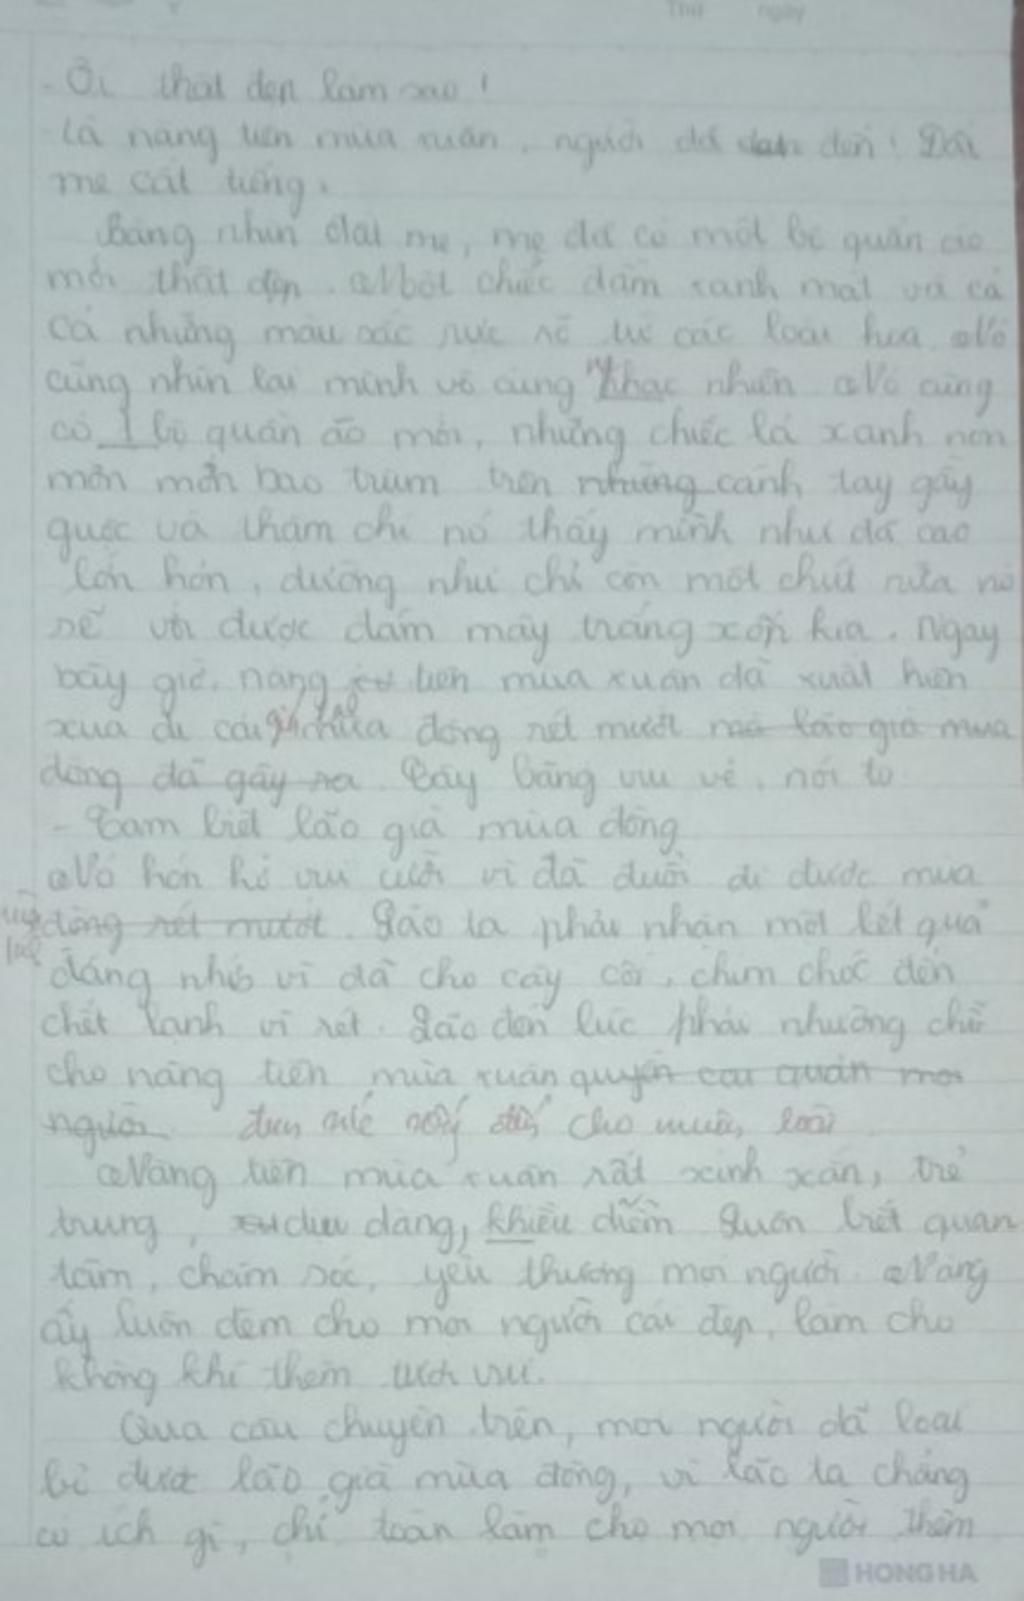 Thứ ngày
- Ôi thật đẹp làm sao!
- Là nàng tiên mùa xuân, người đã đến! Đất
mẹ cất tiếng.
Bàng nhìn đất mẹ, mẹ đã có một bộ quần áo
mới thật đẹp. Một chiếc đầm xanh mát và cả
cả những màu sắc rực rỡ từ các loài hoa. Nó
cũng nhìn lại mình vô cùng nhạc nhiên. Nó cũng
có 1 bộ quần áo mới, những chiếc lá xanh non
mơn mởn bao trùm trên những cánh tay gầy
guộc và thậm chí nó thấy mình như đã cao
lớn hơn, dường như chỉ còn một chút nữa nó
sẽ với được đám mây trắng xốp kia. Ngay
bây giờ, nàng tiên mùa xuân đã xuất hiện
xua đi cái đông rét mướt mà lão già mùa
đông đã gây ra. Cây bàng vui vẻ, nói to
- Tạm biệt lão già mùa đông
Nó hớn hở vui cười vì đã đuổi đi được mùa
đông rét mướt. Lão ta phải nhận một kết quả
đáng nhớ vì đã cho cây cối, chim chóc đến
chết lạnh vì rét. Lão đến lúc phải nhường chỗ
cho nàng tiên mùa xuân quyến mọi
người cho muôn loài
Nàng tiên mùa xuân rất xinh xắn, trẻ
trung, dịu dàng, khiều diễm. Luôn biết quan
tâm, chăm sóc, yêu thương mọi người. Nàng
ấy luôn đem cho mọi người cái đẹp, làm cho
không khí thêm tươi vui.
Qua câu chuyện trên, mọi người đã loại
bỏ được lão già mùa đông, vì lão ta chẳng
có ích gì, chỉ toàn làm cho mọi người thêm
HONG HA